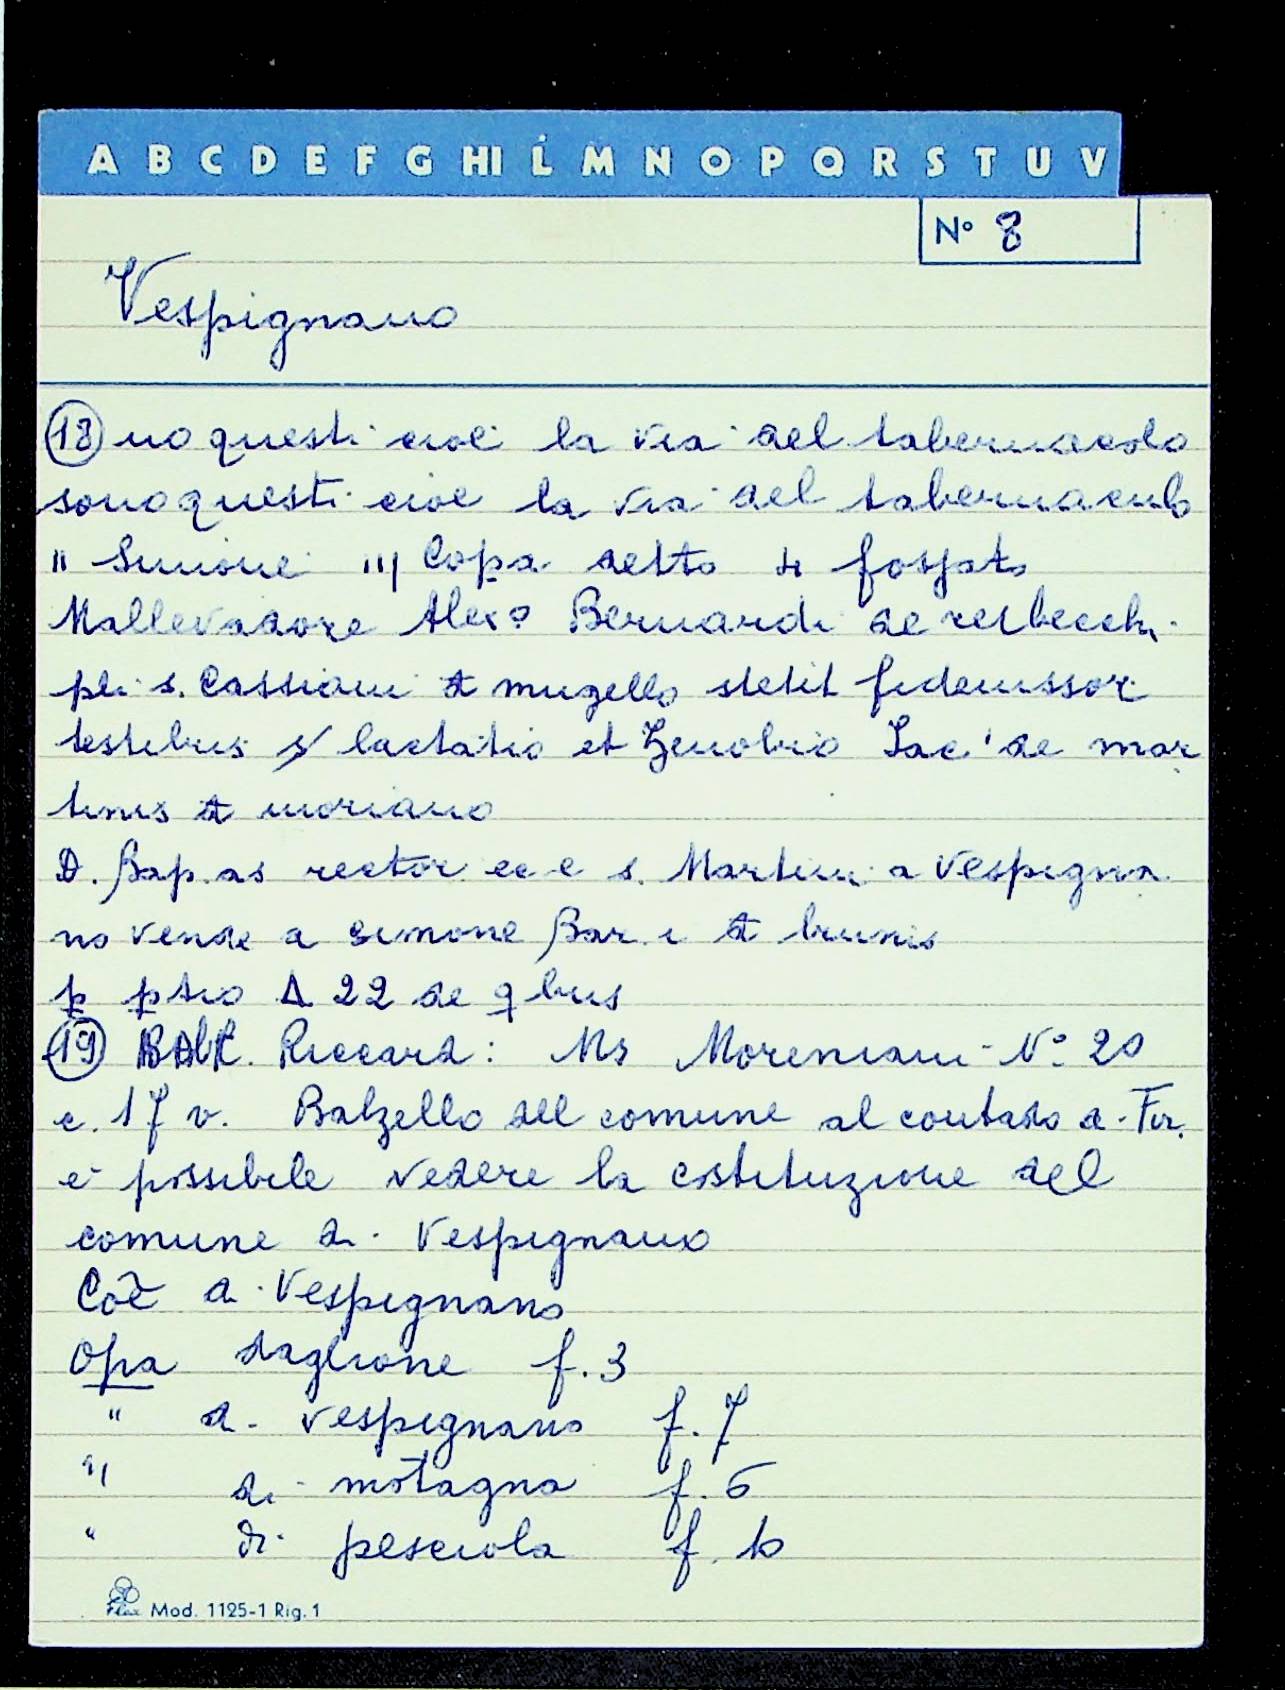 A B C D E F G HI L M N O P Q R S T U V
N° 8
Vespignano
18 no questi cioè la via del tabernacolo
sono questi cioe la via del tabernaculo
" Simone "| Copa detto di fossato
Mallevadore Alexo Bernardi de
pli s. Cassiani d mugello stetit fideiussor
testibus s/ lactatio et Zenobio Jac' de mar
tinis d moriano
D. Bap.as rector ec e s. Martini a Vespigna
no vende a simone Bar. i d brunis
p ptio Δ 22 de qbus
19 Riccard: Ms Moreniani N° 20
c. 17 v. Balzello del comune al contado di Fir.
e possibile vedere la costituzione del
comune di Vespignano
Coē di Vespignano
Opa daglione f. 3
" di vespignano f. 7
" di mōtagna f. 6
" di pesciola f. 10
Flex Mod. 1125-1 Rig. 1